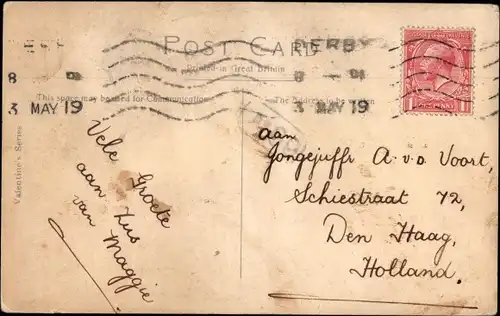 POST CARD
DERBY
Printed in Great Britain
8
3 MAY 19
8
3 MAY 19
This space may be used for Communication
The Address to be written
1 ONE PENNY 1
Valentine's Series
Vele Groete
aan Zus
van Maggie
aan
Jongejuffr A. v. d. Voort,
Schiestraat 72,
Den Haag,
Holland.